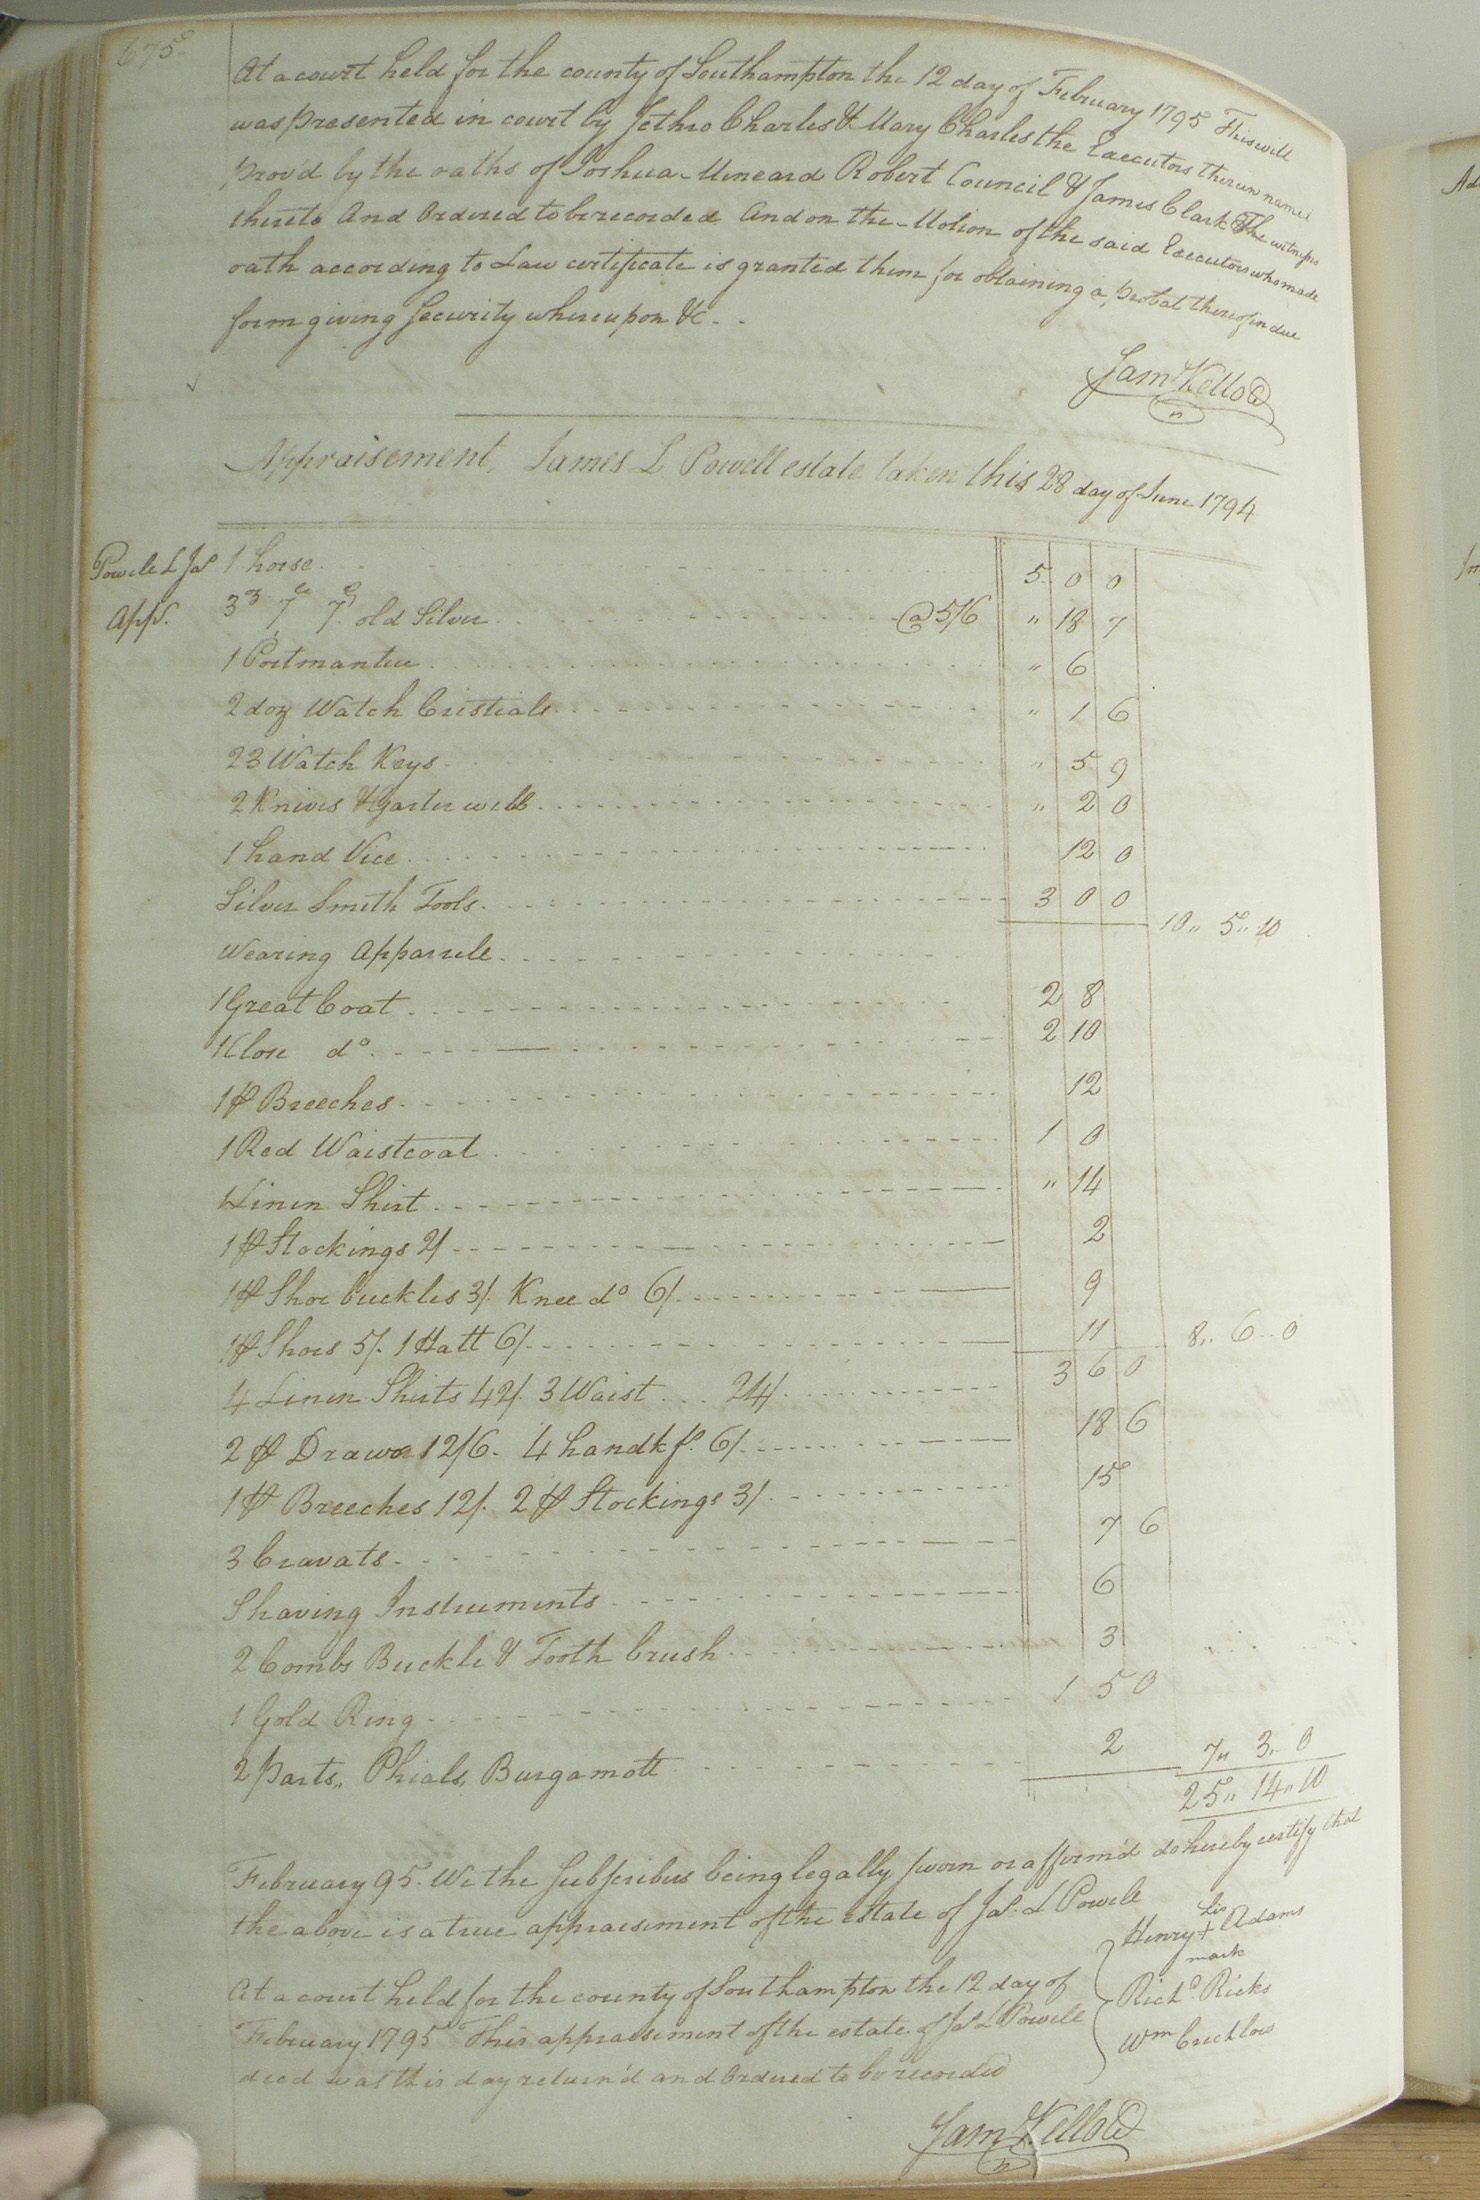 675
At a court held for the county of Southampton the 12 day of February 1795 This will
was presented in court by Jethro Charles & Mary Charles the Executors therein named
prov'd by the oaths of Joshua Meneard Robert Council & James Clark The witnesses
thereto And Ordered to be recorded And on the Motion of the said Executors who made
oath according to Law certificate is granted them for obtaining a probat thereof in due
form giving security whereupon &c..
Sam Kello
Appraisement, James L Powell estate taken this 28 day of June 1794
Powele L Jas App.
1 horse 5. 0 0
3 7 7 old Silver @ 5/6 " 18 7
1 Portmantue " 6
2 doz Watch Cristials " 1 6
23 Watch Keys " 5 9
2 Knives & garter webb " 2 0
1 hand Vice 12 0
Silver Smith Tools 3 0 0
10,, 5,, 10
Wearing Apparrele
1 Great Coat 2 8
1 Close do. 2 10
1 pr Breeches 12
1 Red Waistcoat 1 0
1 Linen Shirt " 14
1 pr Stockings 2/ 2
1 pr Shoe buckles 3/. Knee do 6/. 9
1 pr Shoes 5/. 1 Hatt 6/. 11
8,, 6.. 0
4 Linen Shirts 42/. 3 Waist... 24/. 3 6 0
2 pr Drawrs 12/6. 4 handkfs. 6/. 18 6
1 pr Breeches 12/. 2 pr Stockings 3/. 15
3 Cravats 7 6
Shaving Instruments 6
2 Combs Buckle & Tooth brush 3
1 Gold Ring 1 5 0
2 parts,, Phials, Burgamott 2
7,, 3,, 0
25,, 14,, 10
February 95. We the Subscribers being legally sworn or affirm'd do hereby certify that
the above is a true appraisement of the Estate of Jas. L Powele
Henry his + mark Adams
Richd. Ricks
Wm Crichlow
At a court held for the county of Southampton the 12 day of
February 1795 This appraisement of the estate of Jas L Powele
decd was this day return'd and Ordered to be recorded
Sam Kello